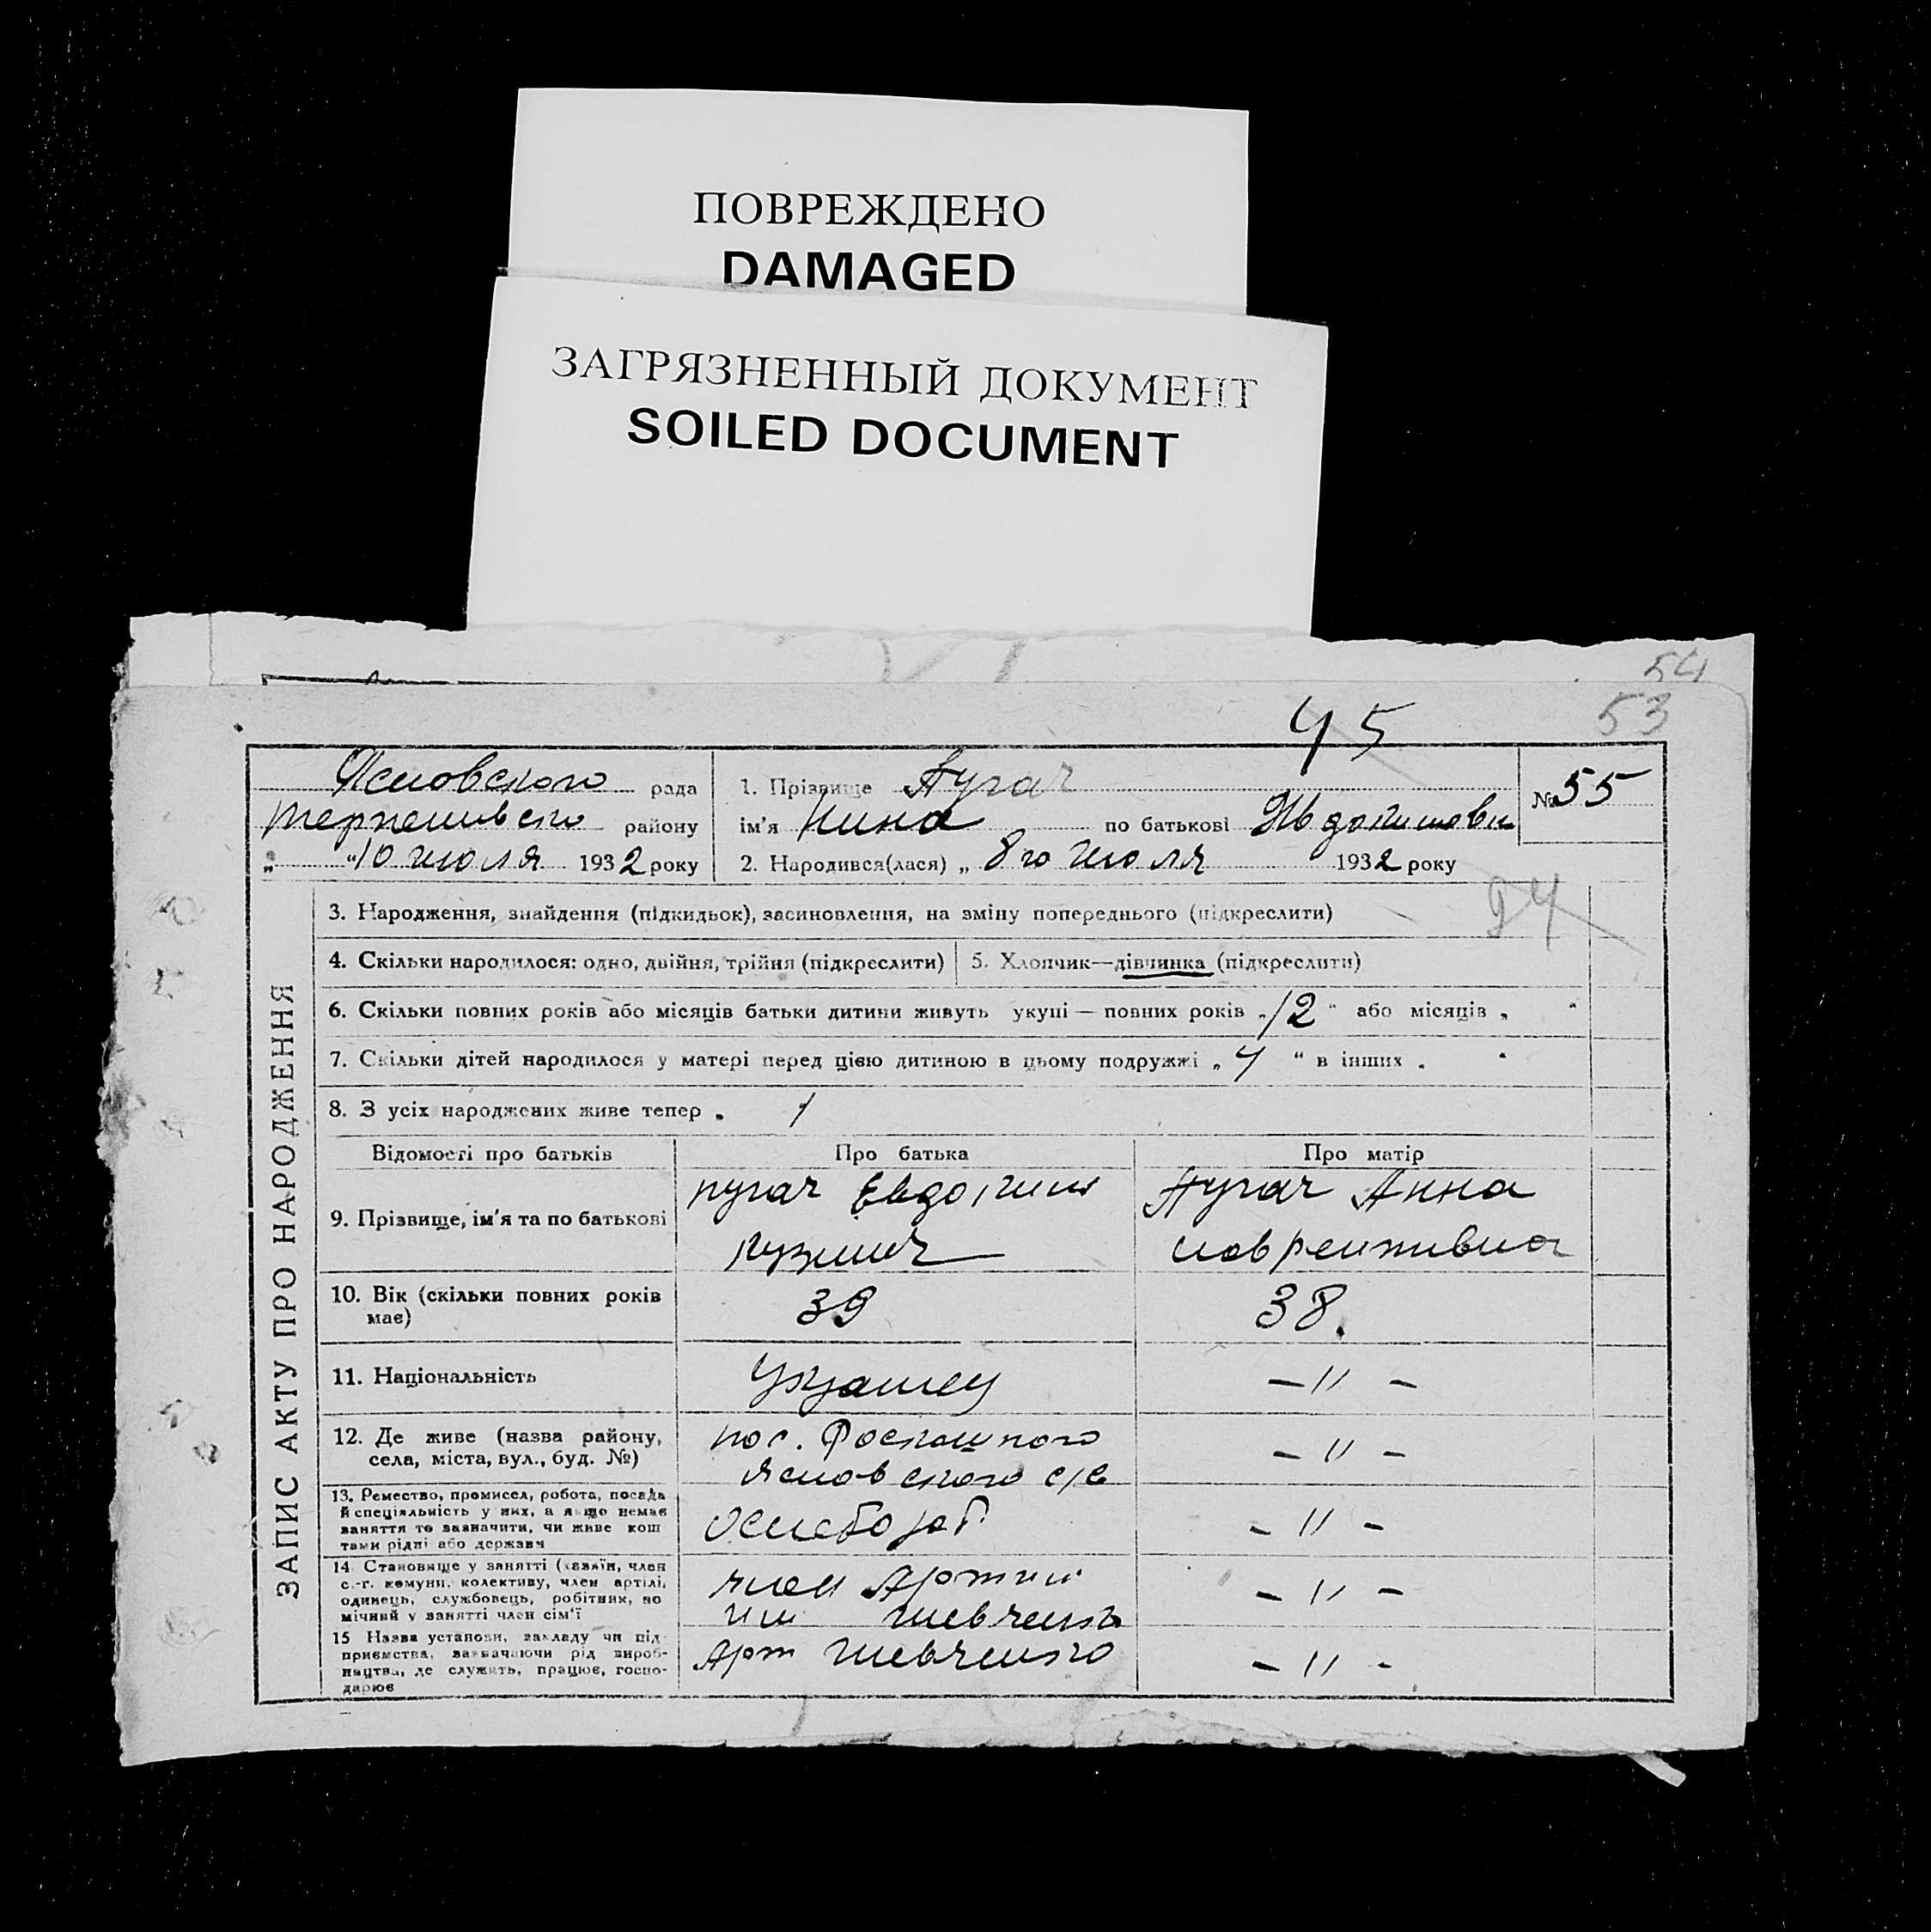 ПОВРЕЖДЕНО
DAMAGED
ЗАГРЯЗНЕННЫЙ ДОКУМЕНТ
SOILED DOCUMENT
54
53
45
рада
району
„ “10 июля 1932 року
1. Прізвище Пугач
ім'я Нина по батькові
2. Народився(лася) „ 8го Июля 1932 року
№ 55
94
ЗАПИС АКТУ ПРО НАРОДЖЕННЯ
3. Народження, знайдення (підкидьок), засиновлення, на зміну попереднього (підкреслити)
4. Скільки народилося: одно, двійня, трійня (підкреслити)
5. Хлопчик—дівчинка (підкреслити)
6. Скільки повних років або місяців батьки дитини живуть укупі — повних років „12“ або місяців „ “
7. Скільки дітей народилося у матері перед цією дитиною в цьому подружжі „4“ в інших „ “
8. З усіх народжених живе тепер „ 1
Відомості про батьків
Про батька
Про матір
9. Прізвище, ім'я та по батькові
пугач Евдоким
Кузмич
Пугач Анна
10. Вік (скільки повних років
має)
39
38.
11. Національність
– 〃 –
12. Де живе (назва району,
села, міста, вул., буд. №)
пос. Роскошного
Ясиовского с/с
– 〃 –
13. Ремество, промисел, робота, посада
й спеціяльність у них, а якщо немає
заняття то зазначити, чи живе кош
тами рідні або держави
– 〃 –
14. Становище у занятті (хазяїн, член
с.-г. комуни, колективу, член артілі,
одинець, службовець, робітник, по
мічний у занятті член сім'ї
член Артили
им Шевченка
– 〃 –
15 Назва установи, закладу чи під
приємства, зазначаючи рід вироб-
ництва, де служить, працює, госпо-
дарює
Арт Шевченко
– 〃 –